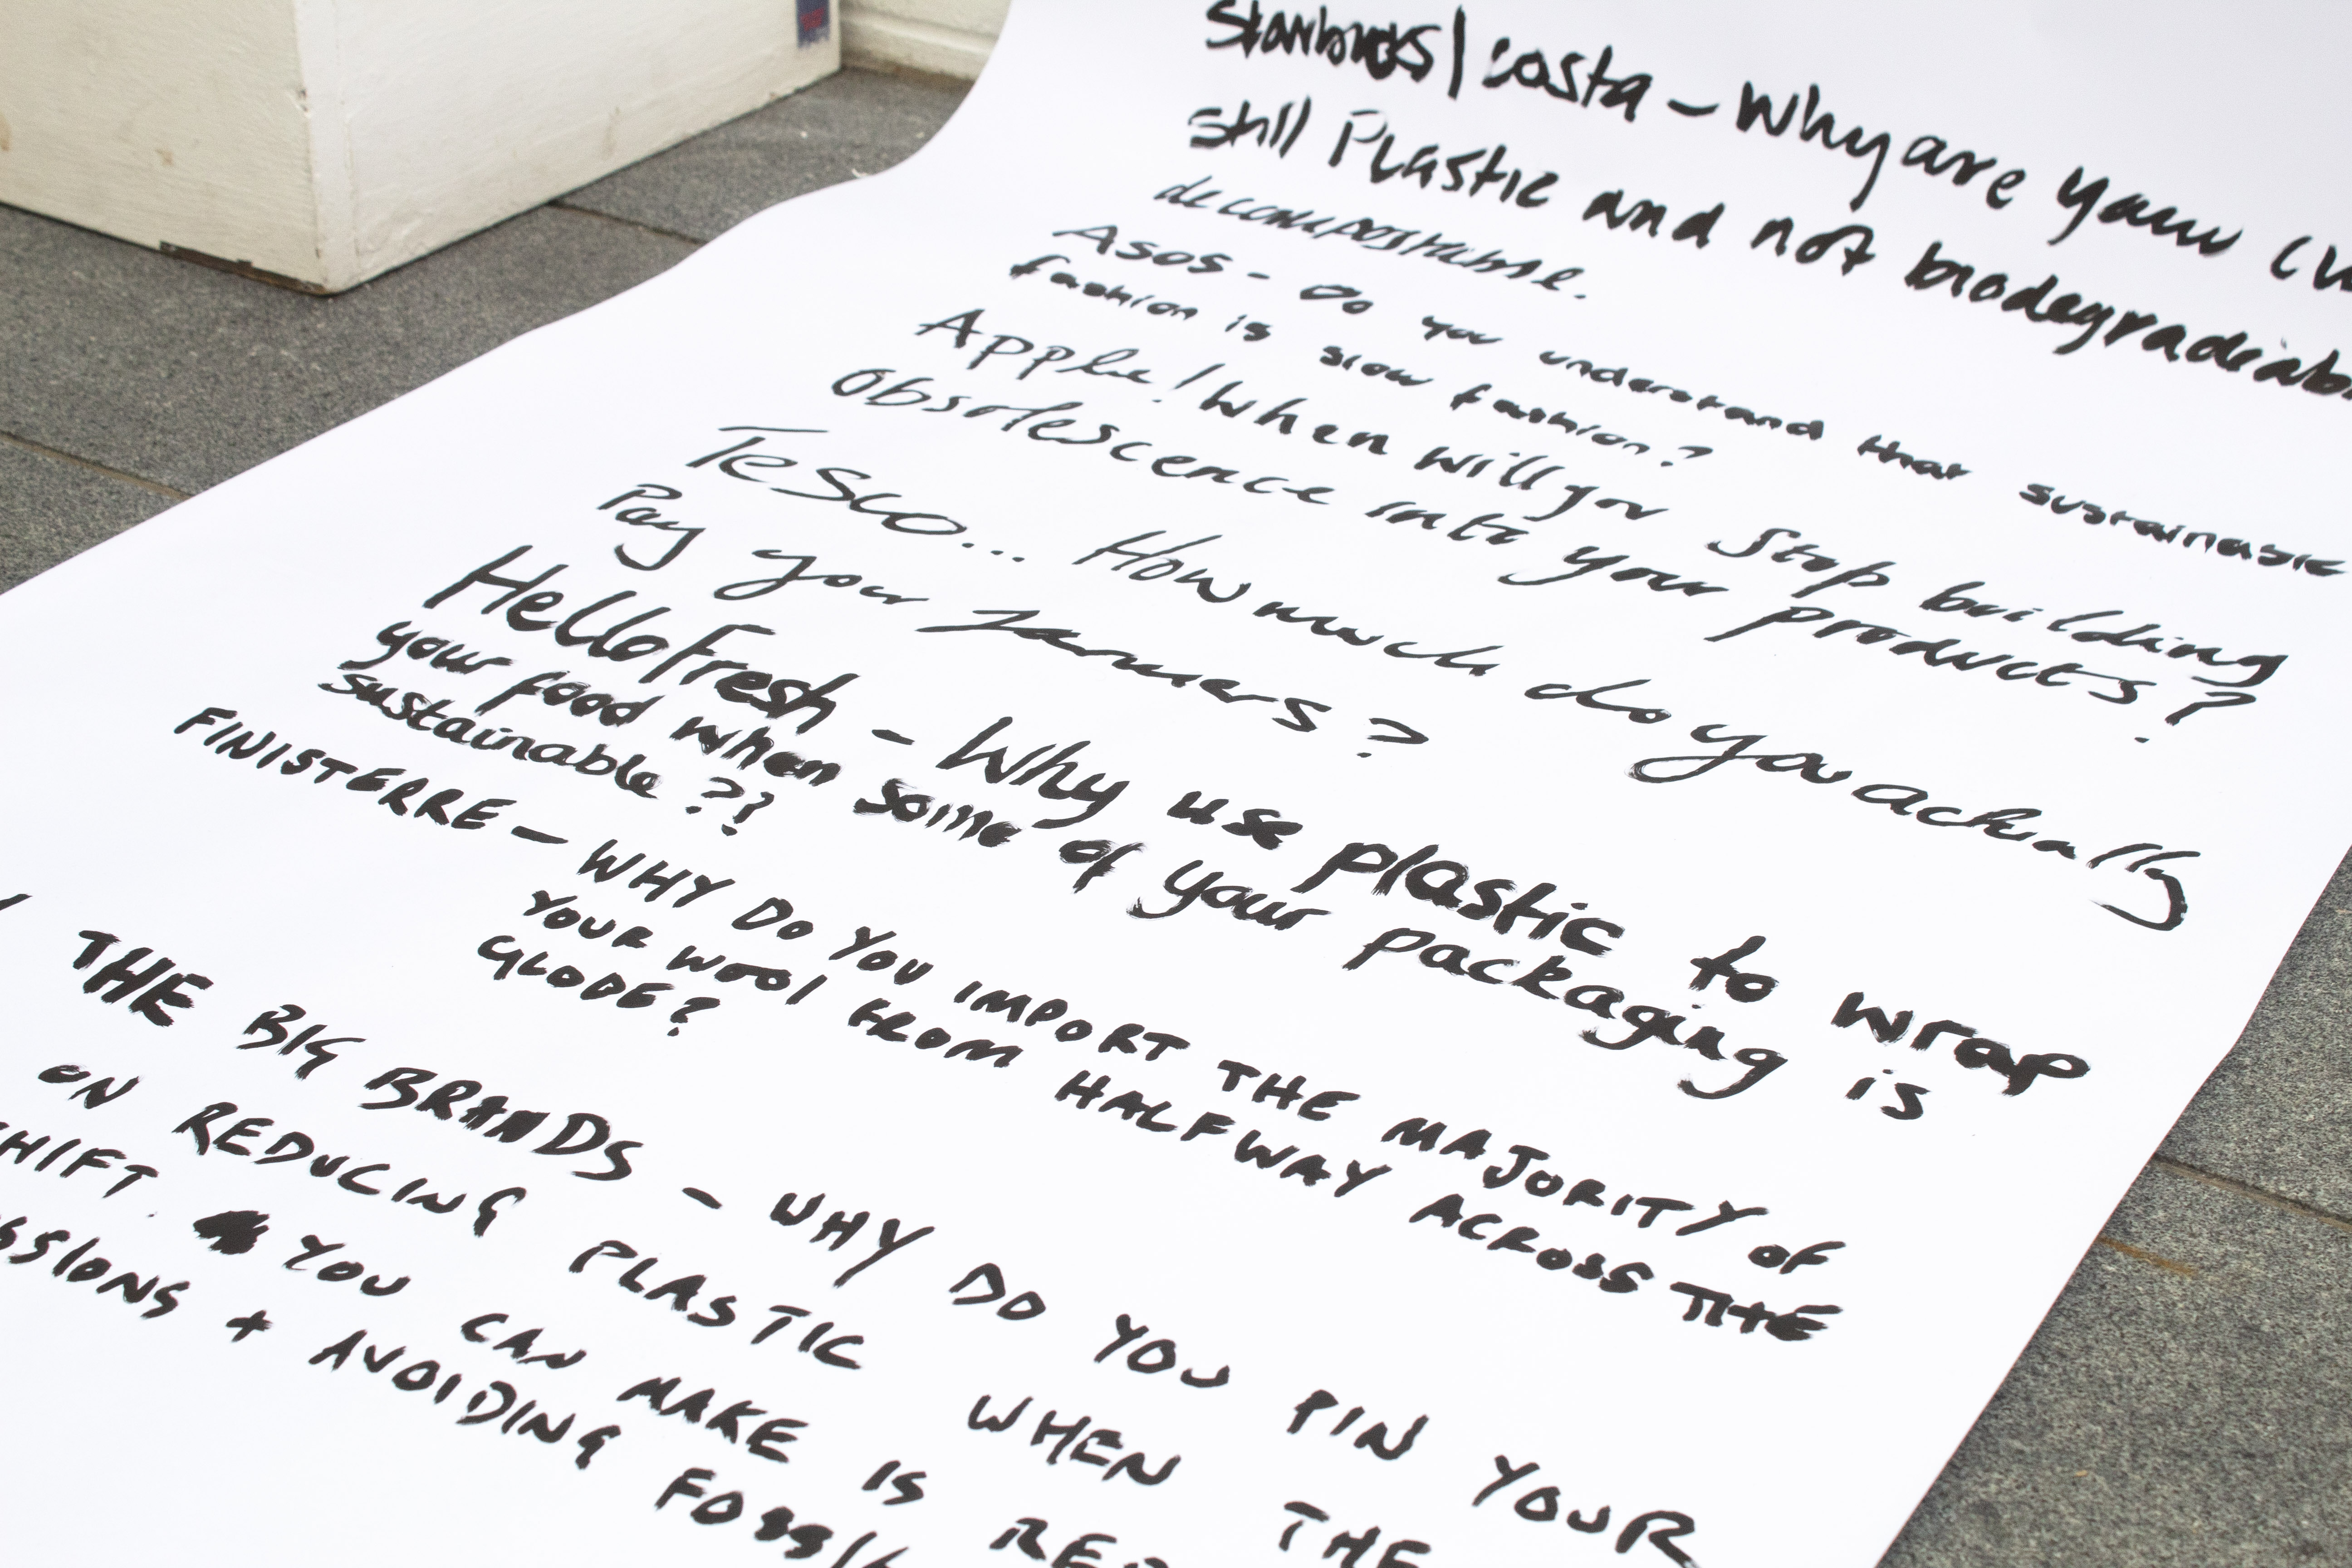 Starbucks/costa - Why are your
still Plastic and not
decompostable.
Asos - Do you understand that sustainable
fashion is slow fashion?
Apple! When will you Stop building
Obsolescence into your products?
Tesco... How much do you actually
Pay your farmers?
HelloFresh - Why use plastic to wrap
your food when some of your packaging is
sustainable??
FINISTERRE - WHY DO YOU IMPORT THE MAJORITY OF
YOUR WOOL FROM HALFWAY ACROSS THE
GLOBE?
THE BIG BRANDS - WHY DO YOU PIN YOUR
ON REDUCING PLASTIC WHEN THE
SHIFT. YOU CAN MAKE IS
+ AVOIDING